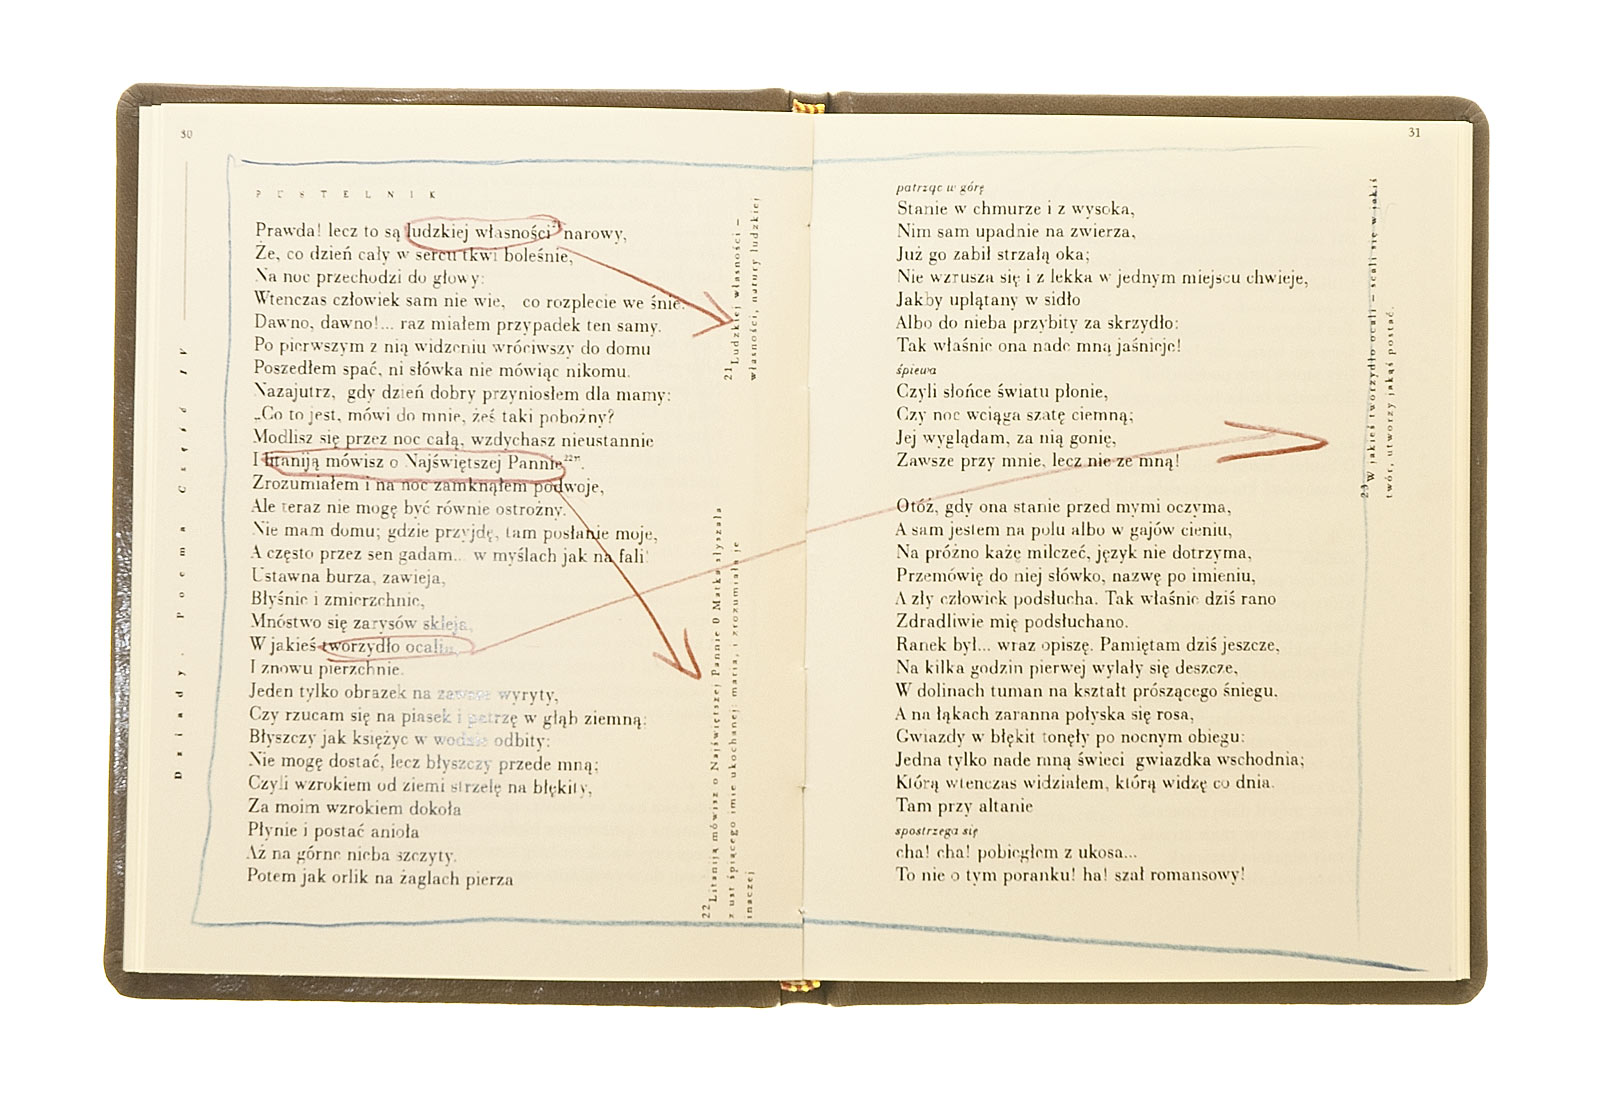 30
PUSTELNIK
Prawda! lecz to są ludzkiej własności²¹ narowy,
Że, co dzień cały w sercu tkwi boleśnie,
Na noc przechodzi do głowy:
Wtenczas człowiek sam nie wie, co rozplecie we śnie.
Dawno, dawno!... raz miałem przypadek ten samy.
Po pierwszym z nią widzeniu wróciwszy do domu
Poszedłem spać, ni słówka nie mówiąc nikomu.
Nazajutrz, gdy dzień dobry przyniosłem dla mamy:
„Co to jest, mówi do mnie, żeś taki pobożny?
Modlisz się przez noc całą, wzdychasz nieustannie
I litaniją mówisz o Najświętszej Pannie²²".
Zrozumiałem i na noc zamknąłem podwoje,
Ale teraz nie mogę być równie ostrożny.
Nie mam domu; gdzie przyjdę, tam posłanie moje,
A często przez sen gadam... w myślach jak na fali!
Ustawna burza, zawieja,
Błyśnie i zmierzchnie,
Mnóstwo się zarysów skleja,
W jakieś tworzydło ocali
I znowu pierzchnie.
Jeden tylko obrazek na zawsze wyryty,
Czy rzucam się na piasek i patrzę w głąb ziemną:
Błyszczy jak księżyc w wodzie odbity:
Nie mogę dostać, lecz błyszczy przede mną;
Czyli wzrokiem od ziemi strzelę na błękity,
Za moim wzrokiem dokoła
Płynie i postać anioła
Aż na górne nieba szczyty.
Potem jak orlik na żaglach pierza
Dziady. Poema Część IV
21 Ludzkiej własności –
własności, natury ludzkiej
22 Litaniją mówisz o Najświętszej Pannie D Matka słyszała
z ust śpiącego imie ukochanej: maria, i zrozumiała je
inaczej
31
patrząc w górę
Stanie w chmurze i z wysoka,
Nim sam upadnie na zwierza,
Już go zabił strzałą oka;
Nie wzrusza się i z lekka w jednym miejscu chwieje,
Jakby uplątany w sidło
Albo do nieba przybity za skrzydło:
Tak właśnie ona nade mną jaśnieje!
śpiewa
Czyli słońce światu płonie,
Czy noc wciąga szatę ciemną;
Jej wyglądam, za nią gonię,
Zawsze przy mnie, lecz nie ze mną!
Otóż, gdy ona stanie przed mymi oczyma,
A sam jestem na polu albo w gajów cieniu,
Na próżno każę milczeć, język nie dotrzyma,
Przemówię do niej słówko, nazwę po imieniu,
A zły człowiek podsłucha. Tak właśnie dziś rano
Zdradliwie mię podsłuchano.
Ranek był... wraz opiszę. Pamiętam dziś jeszcze,
Na kilka godzin pierwej wylały się deszcze,
W dolinach tuman na kształt prószącego śniegu,
A na łąkach zaranna połyska się rosa,
Gwiazdy w błękit tonęły po nocnym obiegu:
Jedna tylko nade mną świeci gwiazdka wschodnia;
Którą wtenczas widziałem, którą widzę co dnia.
Tam przy altanie
spostrzega się
cha! cha! pobiegłem z ukosa...
To nie o tym poranku! ha! szał romansowy!
23 W jakieś tworzydło ocali – scali się w jakiś
twór, utworzy jakąś postać.